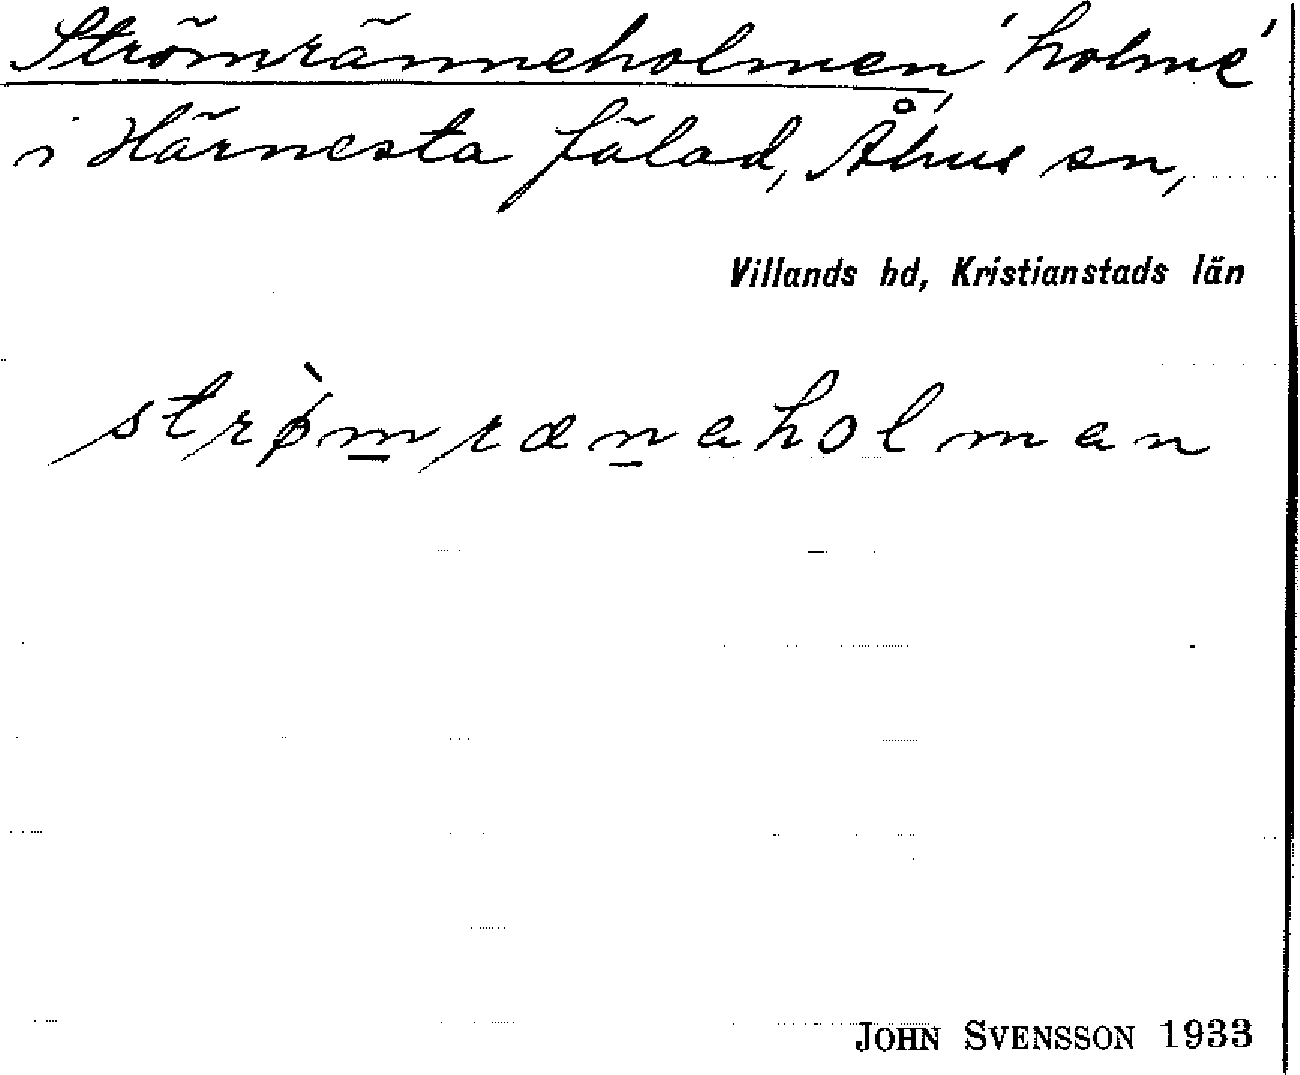 Strömränneholmen 'holme'
i Härnesta fälad, Åhus sn,
Villands hd, Kristianstads län
strø̀m̲ræn̲aholman
JOHN SVENSSON 1933